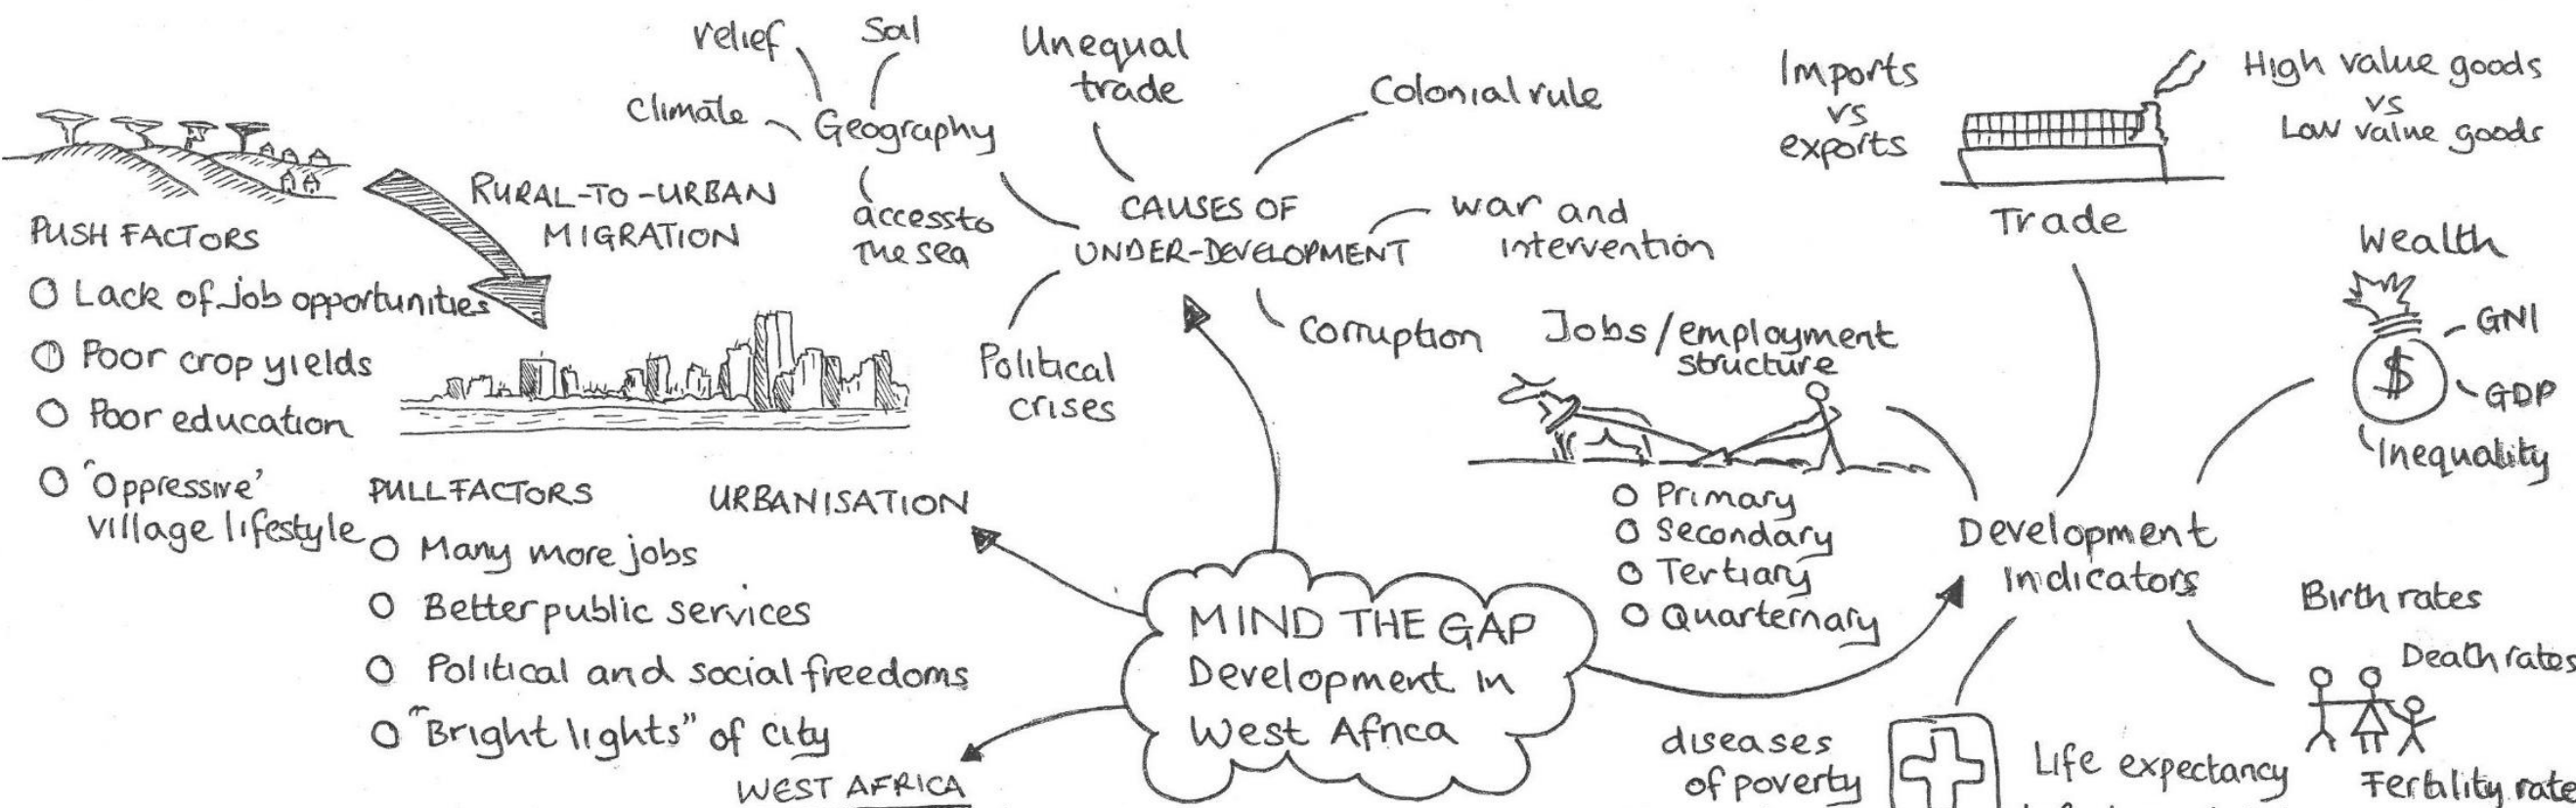 relief
Soil
Climate
Geography
access to
the sea
Unequal
trade
Colonial rule
CAUSES OF
UNDER-DEVELOPMENT
war and
intervention
corruption
Political
crises
RURAL-TO-URBAN
MIGRATION
PUSH FACTORS
Lack of job opportunities
Poor crop yields
Poor education
'Oppressive'
village lifestyle
PULL FACTORS
Many more jobs
Better public services
Political and social freedoms
"Bright lights" of city
URBANISATION
WEST AFRICA
MIND THE GAP
Development in
West Africa
Imports
vs
exports
High value goods
vs
Low value goods
Trade
Wealth
$
GNI
GDP
Inequality
Jobs/employment
structure
Primary
Secondary
Tertiary
Quarternary
Development
indicators
Birth rates
Death rates
Fertility rate
diseases
of poverty
Life expectancy